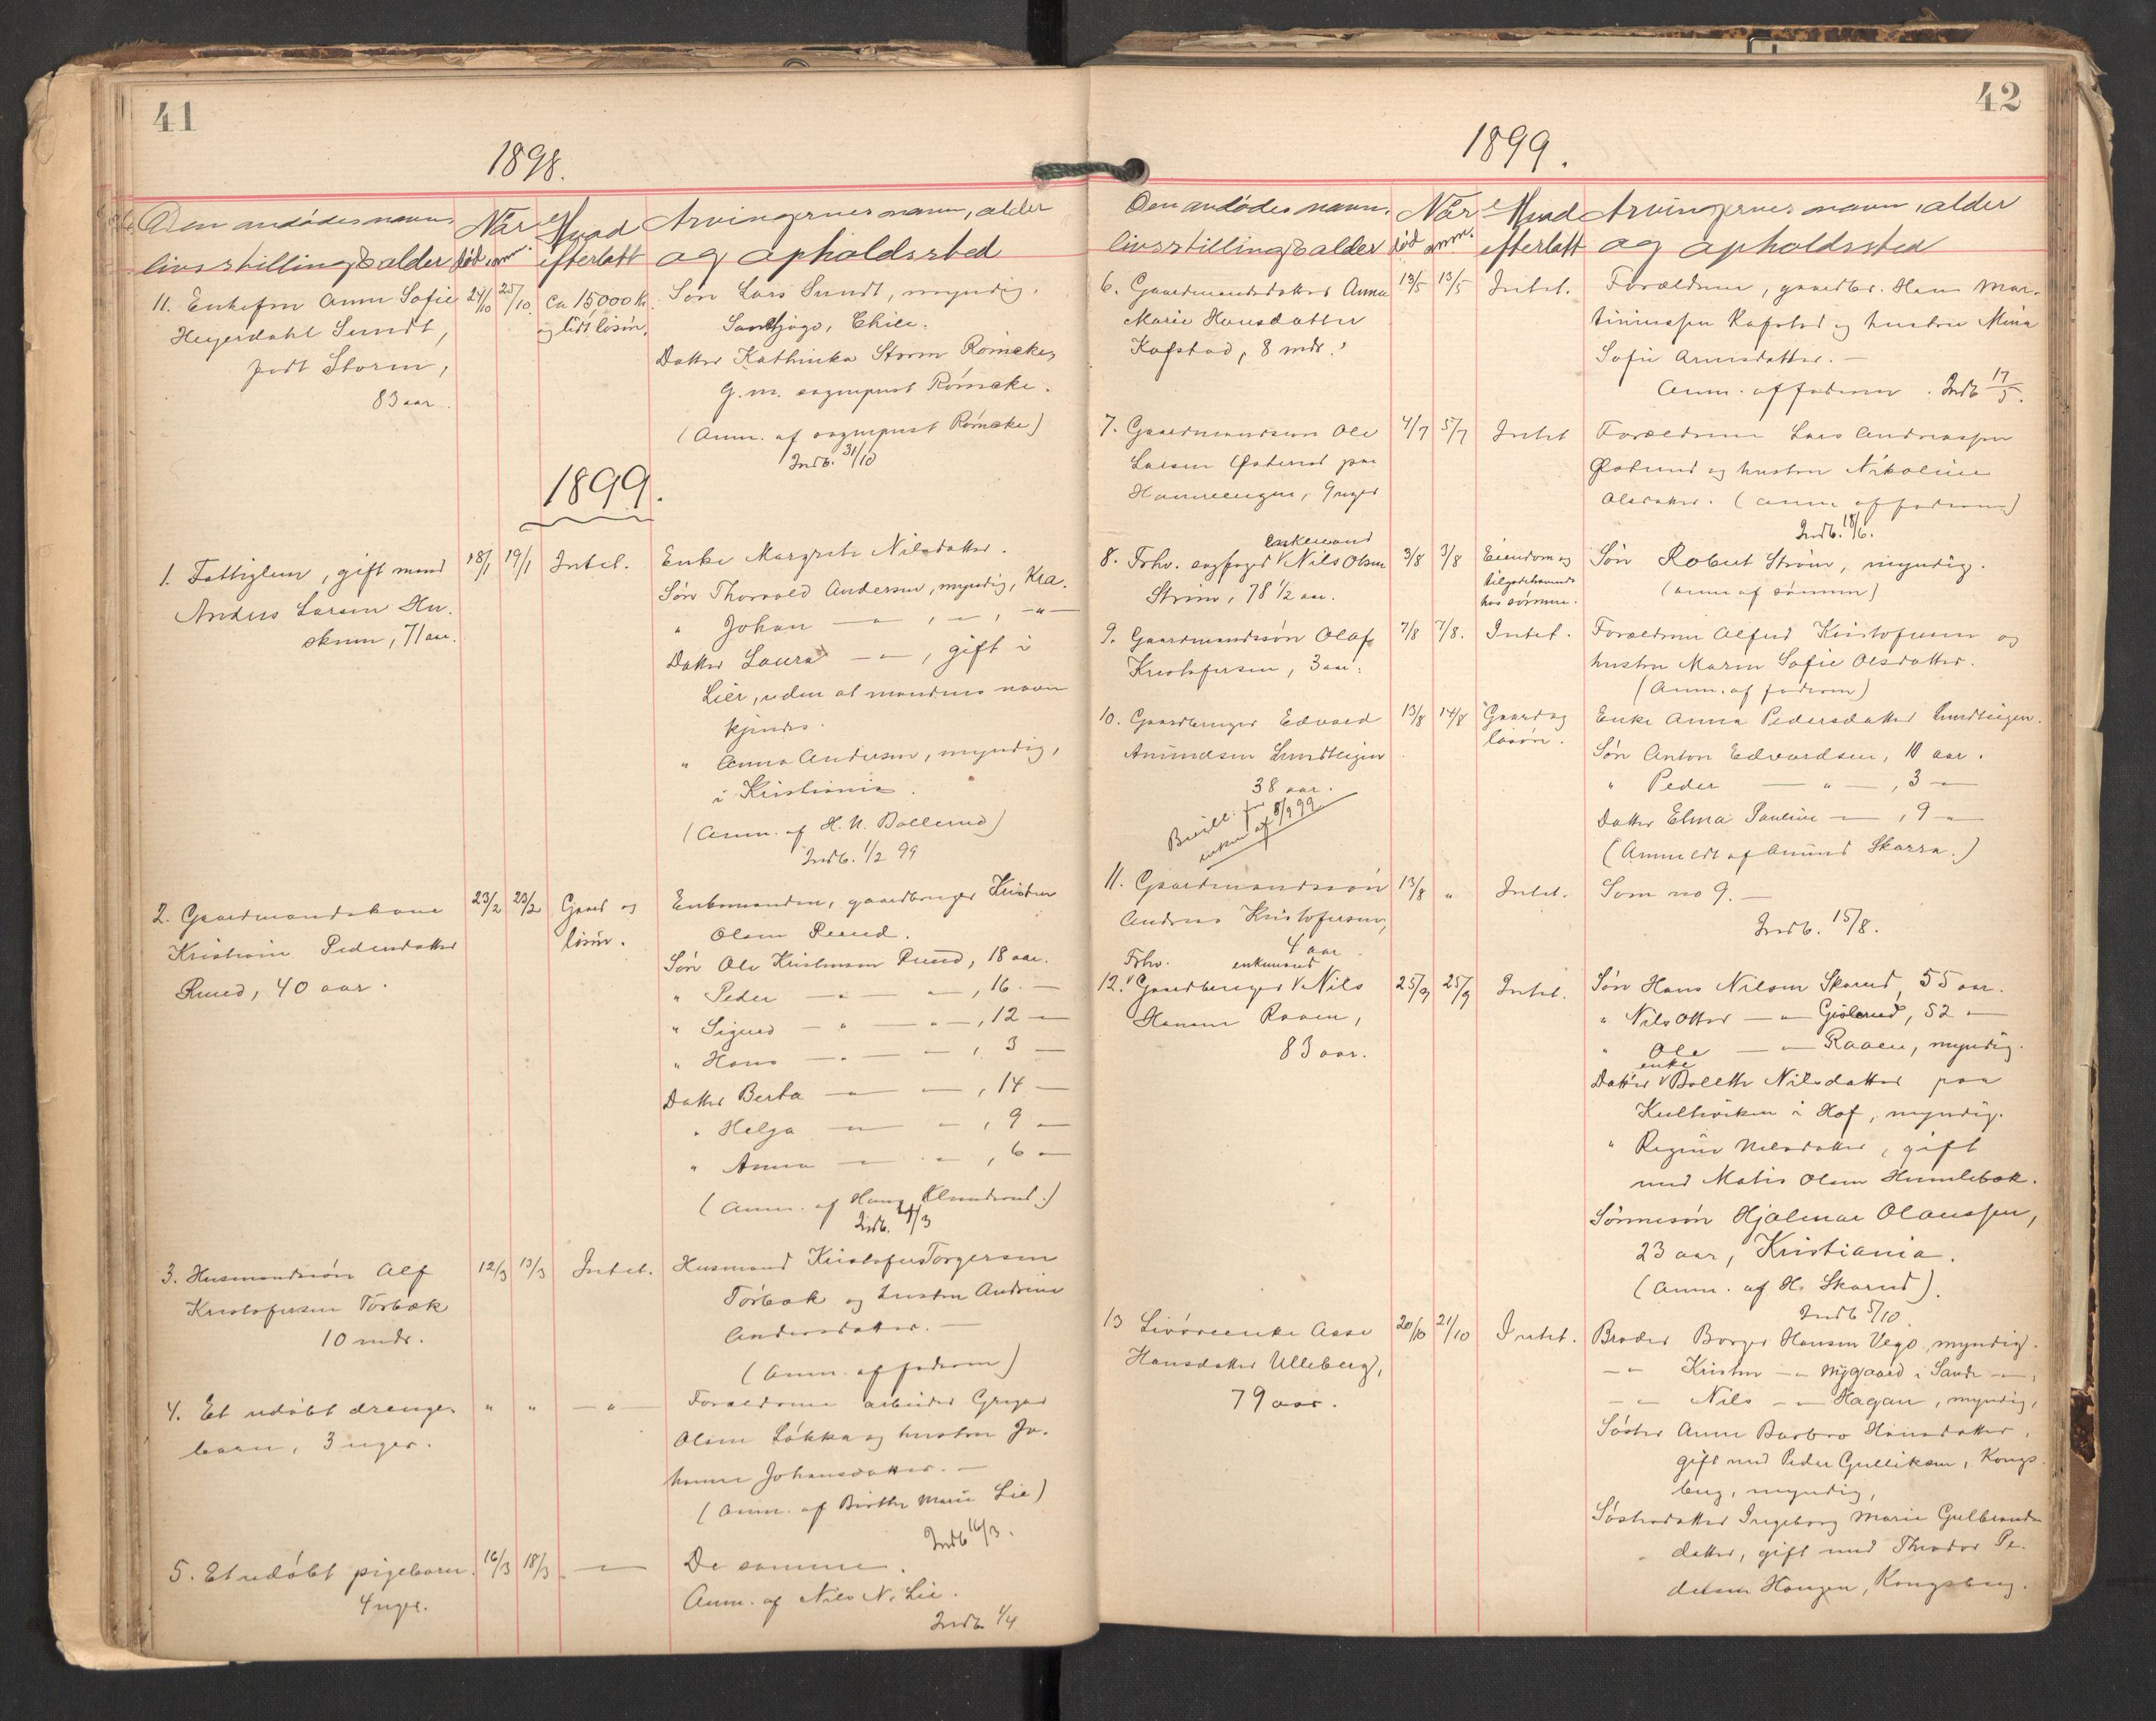 41
1898.
Den avdødes navn, livsstilling & alder
Når død anm.
Hvad efterlatt
Arvingernes navn, alder og opholdssted
11. Enkefru Anne Sofie
Heyerdahl Sundt,
født Storm,
83 aar.
24/10 25/10
Ca 15000 kr.
og lidt løsøre.
Søn Lars Sundt, myndig,
Santjago, Chile.
Datter Kathinka Storm Rømcke,
g. m. sogneprest Rømcke.
(Anm. af sogneprest Rømcke)
Indb. 31/10
1899.
1. Fattiglem, gift mand
Anders Larsen
71 aar.
18/1 19/1 Intet.
Enke Margrete Nilsdatter.
Søn Thorvald Andersen, myndig, Kra.
" Johan — " — , — " — , — " —
Datter Laura — " — , gift i
Lier, uden at mandens navn
kjendes.
" Anna Andersen, myndig,
i Kristiania.
(Anm. af H. N. Bollerud)
Indb. 1/2 99
2. Gaardmandskone
Kristine Pedersdatter
Ruud, 40 aar.
23/2 23/2 Gaard og
løsøre.
Enkemanden, gaardbruger Kristen
Olsen Ruud.
Søn Ole Kristensen Ruud, 18 aar.
" Peder — " — — " —, 16 —
" Sigurd — " — — " —, 12 —
" Hans — " — — " —, 3 —
Datter Berta — " — — " —, 14 —
" Helga — " — — " —, 9 —
" Anna — " — — " —, 6 —
(Anm. af Hans
Indb. 4/3
3. Husmandssøn Alf
Kristofersen Torbæk
10 mdr.
12/3 13/3 Intet.
Husmand Kristofer Torgersen
Torbæk og hustru Andrine
Andersdatter. —
(Anm. af faderen)
4. Et udøbt drenge-
barn, 3 uger.
" " — " —
Forældrene arbeider Greger
Olsen Løkka og hustru Jo-
hanne Johansdatter. —
(Anm. af Birthe Marie Lie)
Indb 16/3.
5. Et udøbt pigebarn.
4 uger.
16/3 18/3 — " —
De samme.
Anm. af Nils N. Lie.
Indb. 1/4
42
1899.
Den avdødes navn, livsstilling & alder
Når død anm.
Hvad efterlatt
Arvingernes navn, alder og opholdssted
6. Gaardmandsdatter Anna
Marie Hansdatter
Kopstad, 8 mdr.
13/5 13/5 Intet.
Forældrene, gaardbr. Hans Mar-
tiniussen Kopstad og hustru Mina
Sofie Arnesdatter. —
Anm. af faderen. Indb 17/5.
7. Gaardmandssøn Ole
Larsen Østerud paa
9 uger
4/7 5/7 Intet
Forældrene Lars Andreassen
Østerud og hustru Nikoline
Olsdatter. (Anm. af faderen)
Indb. 18/6.
8. Frhv. sagfoged enkemand Nils Olsen
Strøm, 78 1/2 aar.
3/8 3/8 Eiendom og
tilgodehavende
hos sønnen.
Søn Robert Strøm, myndig.
(Anm af sønnen)
9. Gaardmandssøn Olaf
Kristofersen, 3 aar.
7/8 7/8. Intet.
Forældrene Alfred Kristofersen og
hustru Maren Sofie Olsdatter.
(Anm. af faderen)
10. Gaardbruger Edvard
Amundsen Lundteigen
38 aar.
Bevill. for
enken af 8/9 99.
13/8 14/8 Gaard og
løsøre.
Enke Anna Pedersdatter Lundteigen.
Søn Anton Edvardsen, 10 aar.
" Peder — " —, 3 — " —
Datter Elma Pauline — " —, 9 — " —
(Anmeldt af Amund Skarra.)
11. Gaardmandssøn
Andreas Kristofersen,
4 aar
13/8 " Intet.
Som no 9. —
Indb. 15/8.
12. Frhv. Gaardbruger enkemand Nils
Hansen Raaen,
83 aar.
25/9 25/9 Intet.
Søn Hans Nilsen Skarud, 55 aar.
" Nils Otter — " — Gislerud, 52 — " —
" Ole — " — Raaen, myndig.
Datter enke Bolette Nilsdatter paa
Kultviken i Hof, myndig.
" Regine Nilsdatter, gift
med Matis Olsen Humlebæk.
Sønnesøn Hjalmar Olaussen,
23 aar, Kristiania.
(Anm. af H. Skarud).
Indb 5/10.
13 Livøreenke Aase
Hansdatter Ulleberg,
79 aar.
20/10 21/10 Intet.
Broder Borger Hansen Vego, myndig.
— " — Kristen — " — Nygaard i Sande — " —,
— " — Nils — " — Hagan, myndig,
Søster Anne Barbro Hansdatter,
gift med Peder Gulliksen, Kongs-
berg, myndig,
Søsterdatter Ingeborg Marie Gulbrands-
datter, gift med Theodor Pe-
dersen Haugen, Kongsberg.